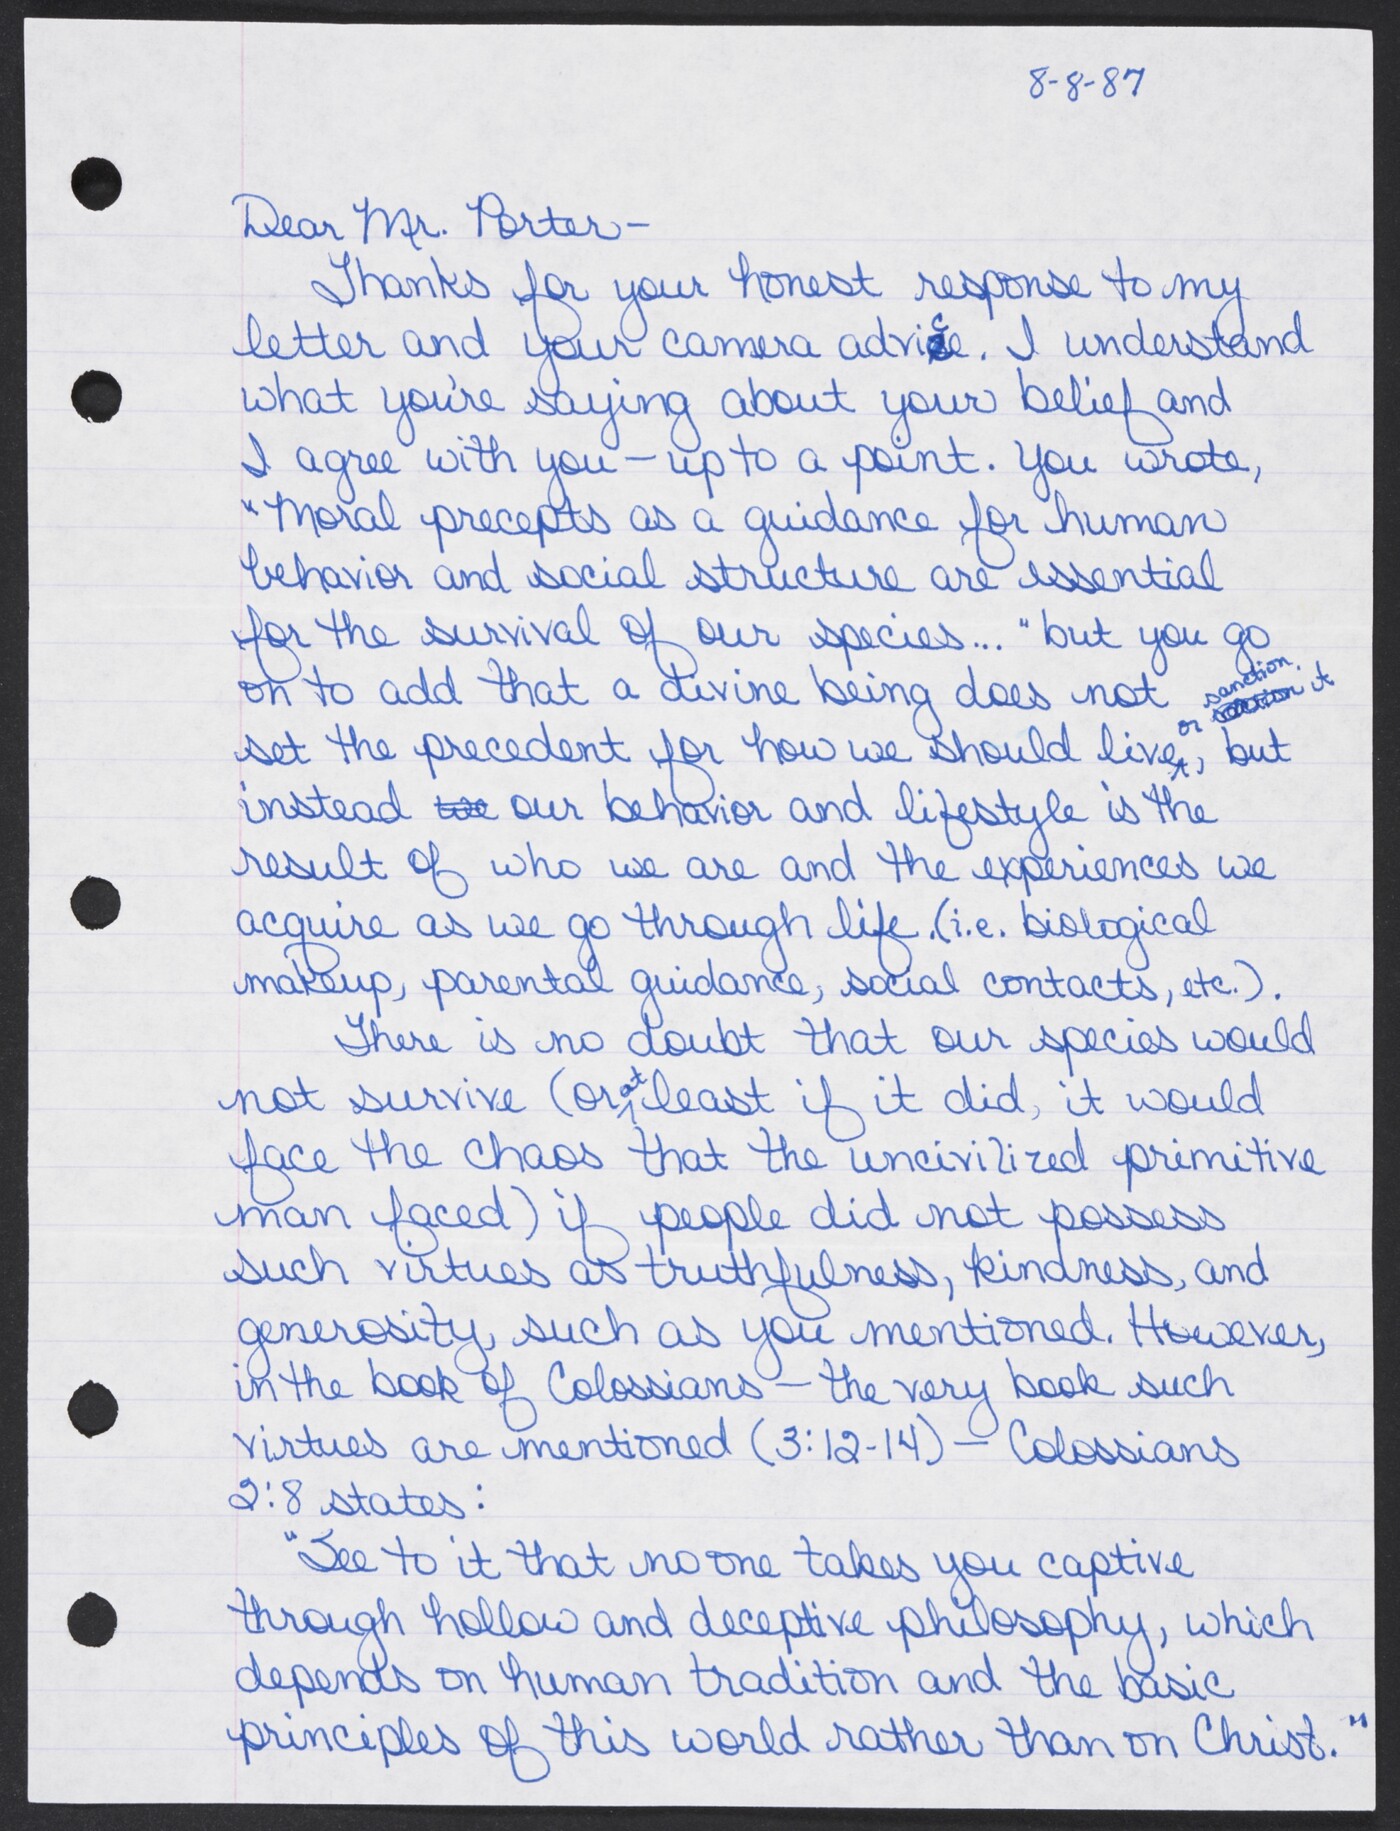 8-8-87
Dear Mr. Porter-
Thanks for your honest response to my
letter and your camera advice. I understand
what you're saying about your belief and
I agree with you - up to a point. You wrote,
"Moral precepts as a guidance for human
behavior and social structure are essential
for the survival of our species... "but you go
on to add that a divine being does not
set the precedent for how we should live or sanction it, but
instead we our behavior and lifestyle is the
result of who we are and the experiences we
acquire as we go through life. (i.e. biological
makeup, parental guidance, social contacts, etc.).
There is no doubt that our species would
not survive (or at least if it did, it would
face the chaos that the uncivilized primitive
man faced) if people did not possess
such virtues as truthfulness, kindness, and
generosity, such as you mentioned. However,
in the book of Colossians - the very book such
virtues are mentioned (3:12-14) - Colossians
2:8 states:
"See to it that no one takes you captive
through hollow and deceptive philosophy, which
depends on human tradition and the basic
principles of this world rather than on Christ."